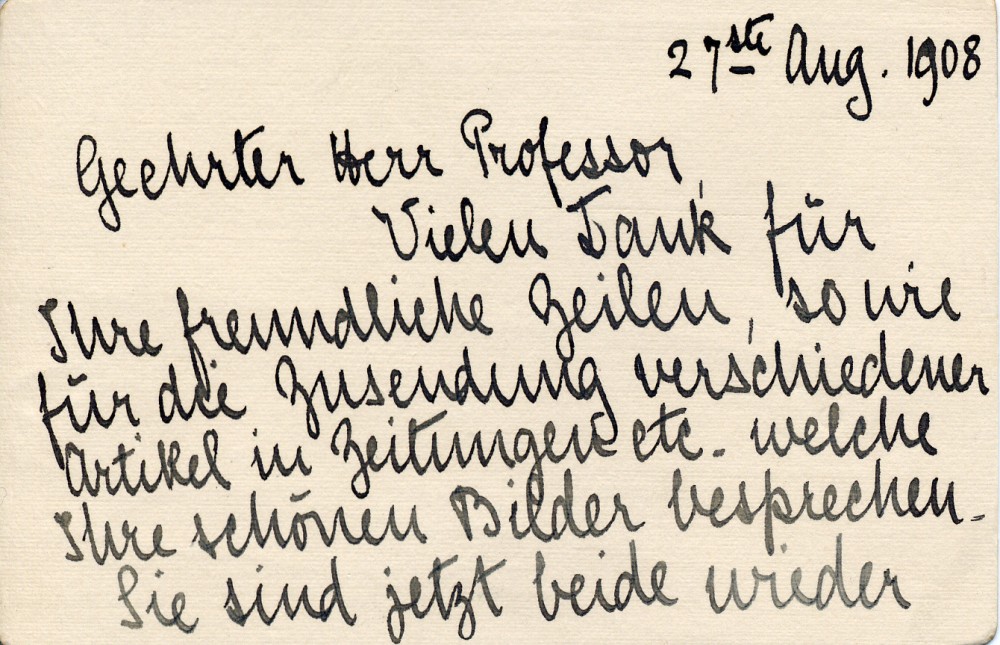 27ste Aug. 1908
Geehrter Herr Professor,
Vielen Dank für
Ihre freundliche Zeilen, sowie
für die Zusendung verschiedener
Artikel in Zeitungen etc. welche
Ihre schönen Bilder besprechen.
Sie sind jetzt beide wieder